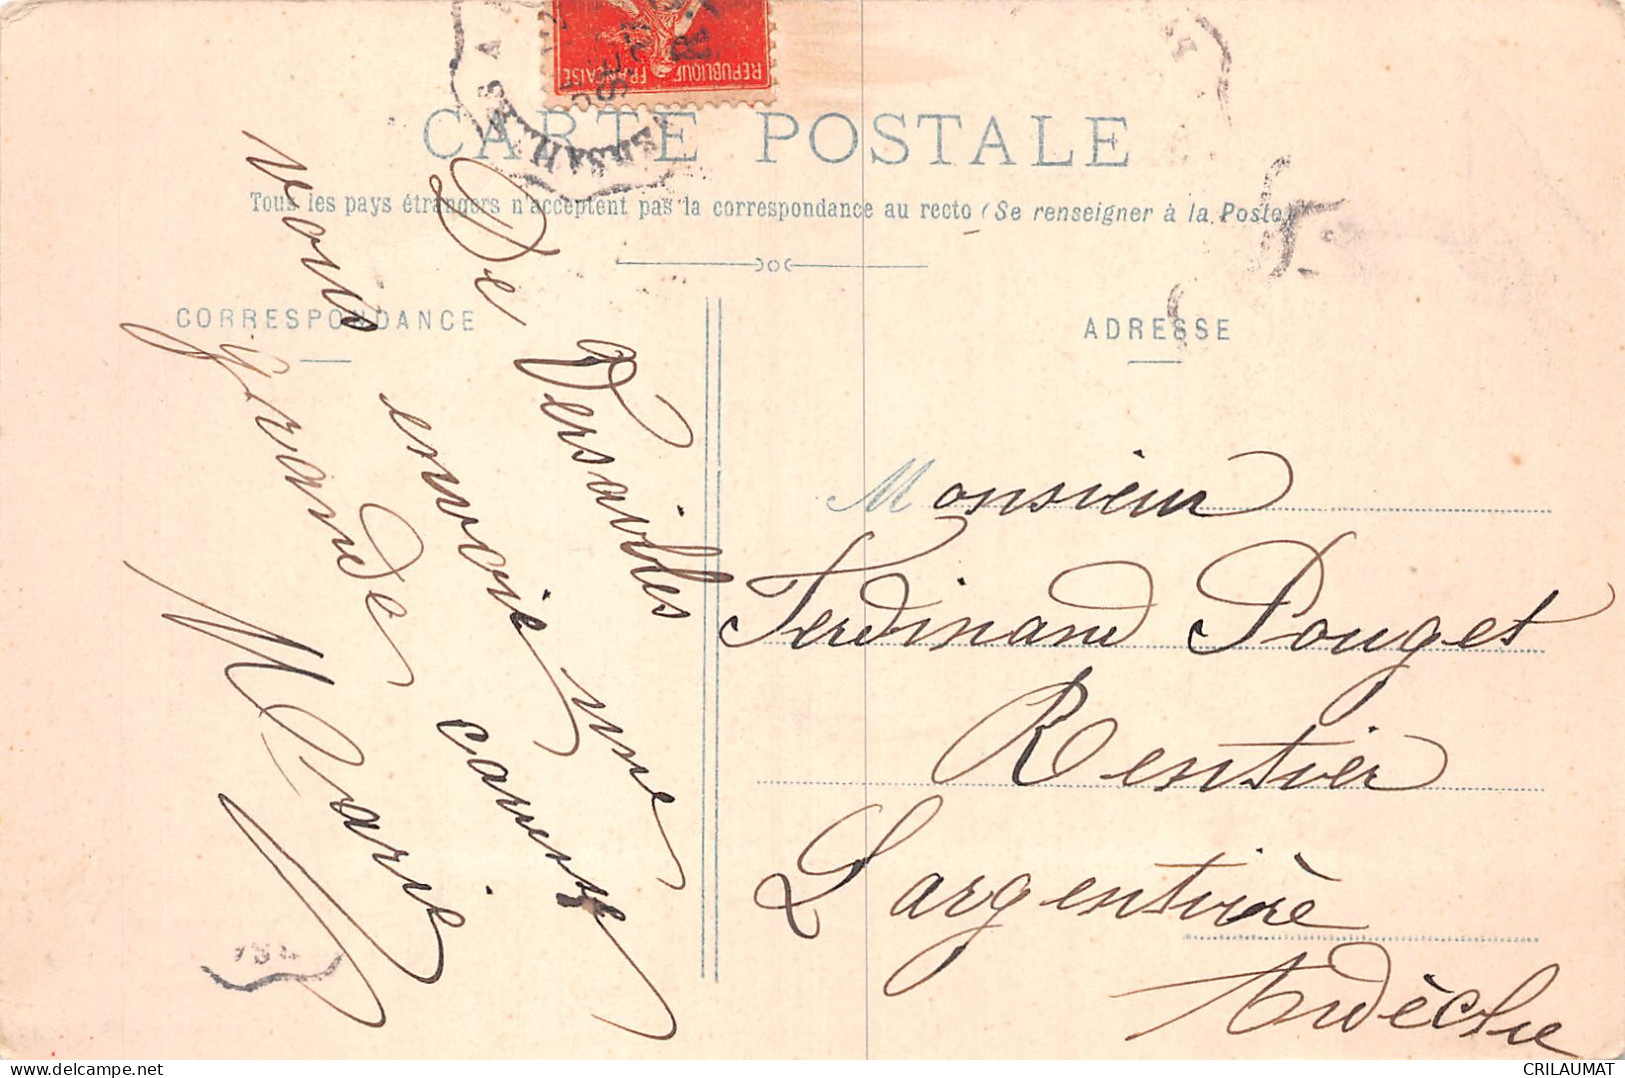 REPUBLIQUE FRANÇAISE
CARTE POSTALE
Tous les pays étrangers n'acceptent pas la correspondance au recto (Se renseigner à la Poste)
CORRESPONDANCE
ADRESSE
De Versailles
vous envoie une
grande caresse
Marie
Monsieur
Ferdinand Pouget
Rentier
Largentière
Ardèche
delcampe.net
CRILAUMAT